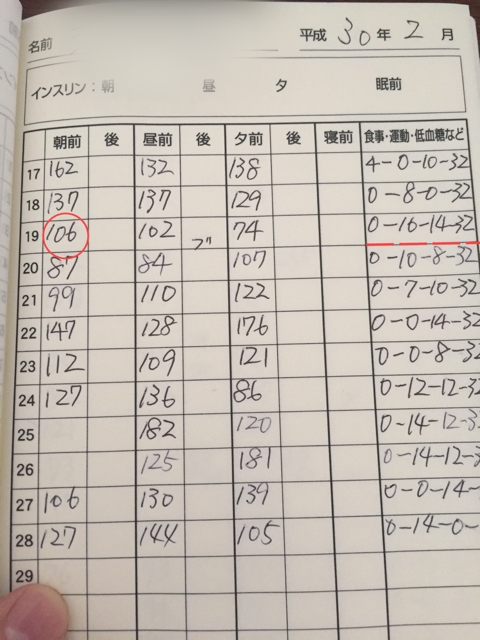 名前
平成 30年 2月
インスリン：朝 昼 夕 眠前
朝前 後 昼前 後 夕前 後 寝前 食事・運動・低血糖など
17 162 132 138 4-0-10-32
18 137 137 129 0-8-0-32
19 106 102 74 0-16-14-32
20 87 84 107 0-10-8-32
21 99 110 122 0-7-10-32
22 147 128 176 0-0-14-32
23 112 109 121 0-0-8-32
24 127 136 86 0-12-12-32
25 182 120 0-14-12-3
26 125 181 0-14-12-3
27 106 130 139 0-0-14-
28 127 144 105 0-14-0-
29